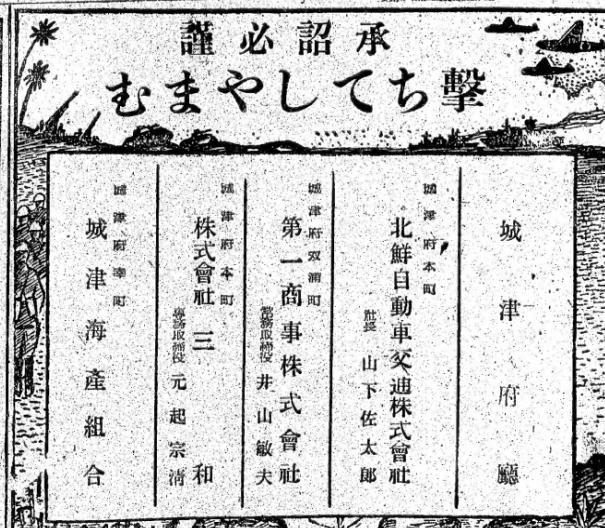 承詔必謹
擊ちてしやまむ
城津府廳
城津府本町
北鮮自動車交通株式會社
社長 山下佐太郎
城津府双浦町
第一商事株式會社
常務取締役 井山敏夫
城津府本町
株式會社 三和
專務取締役 元起宗淸
城津府幸町
城津海產組合